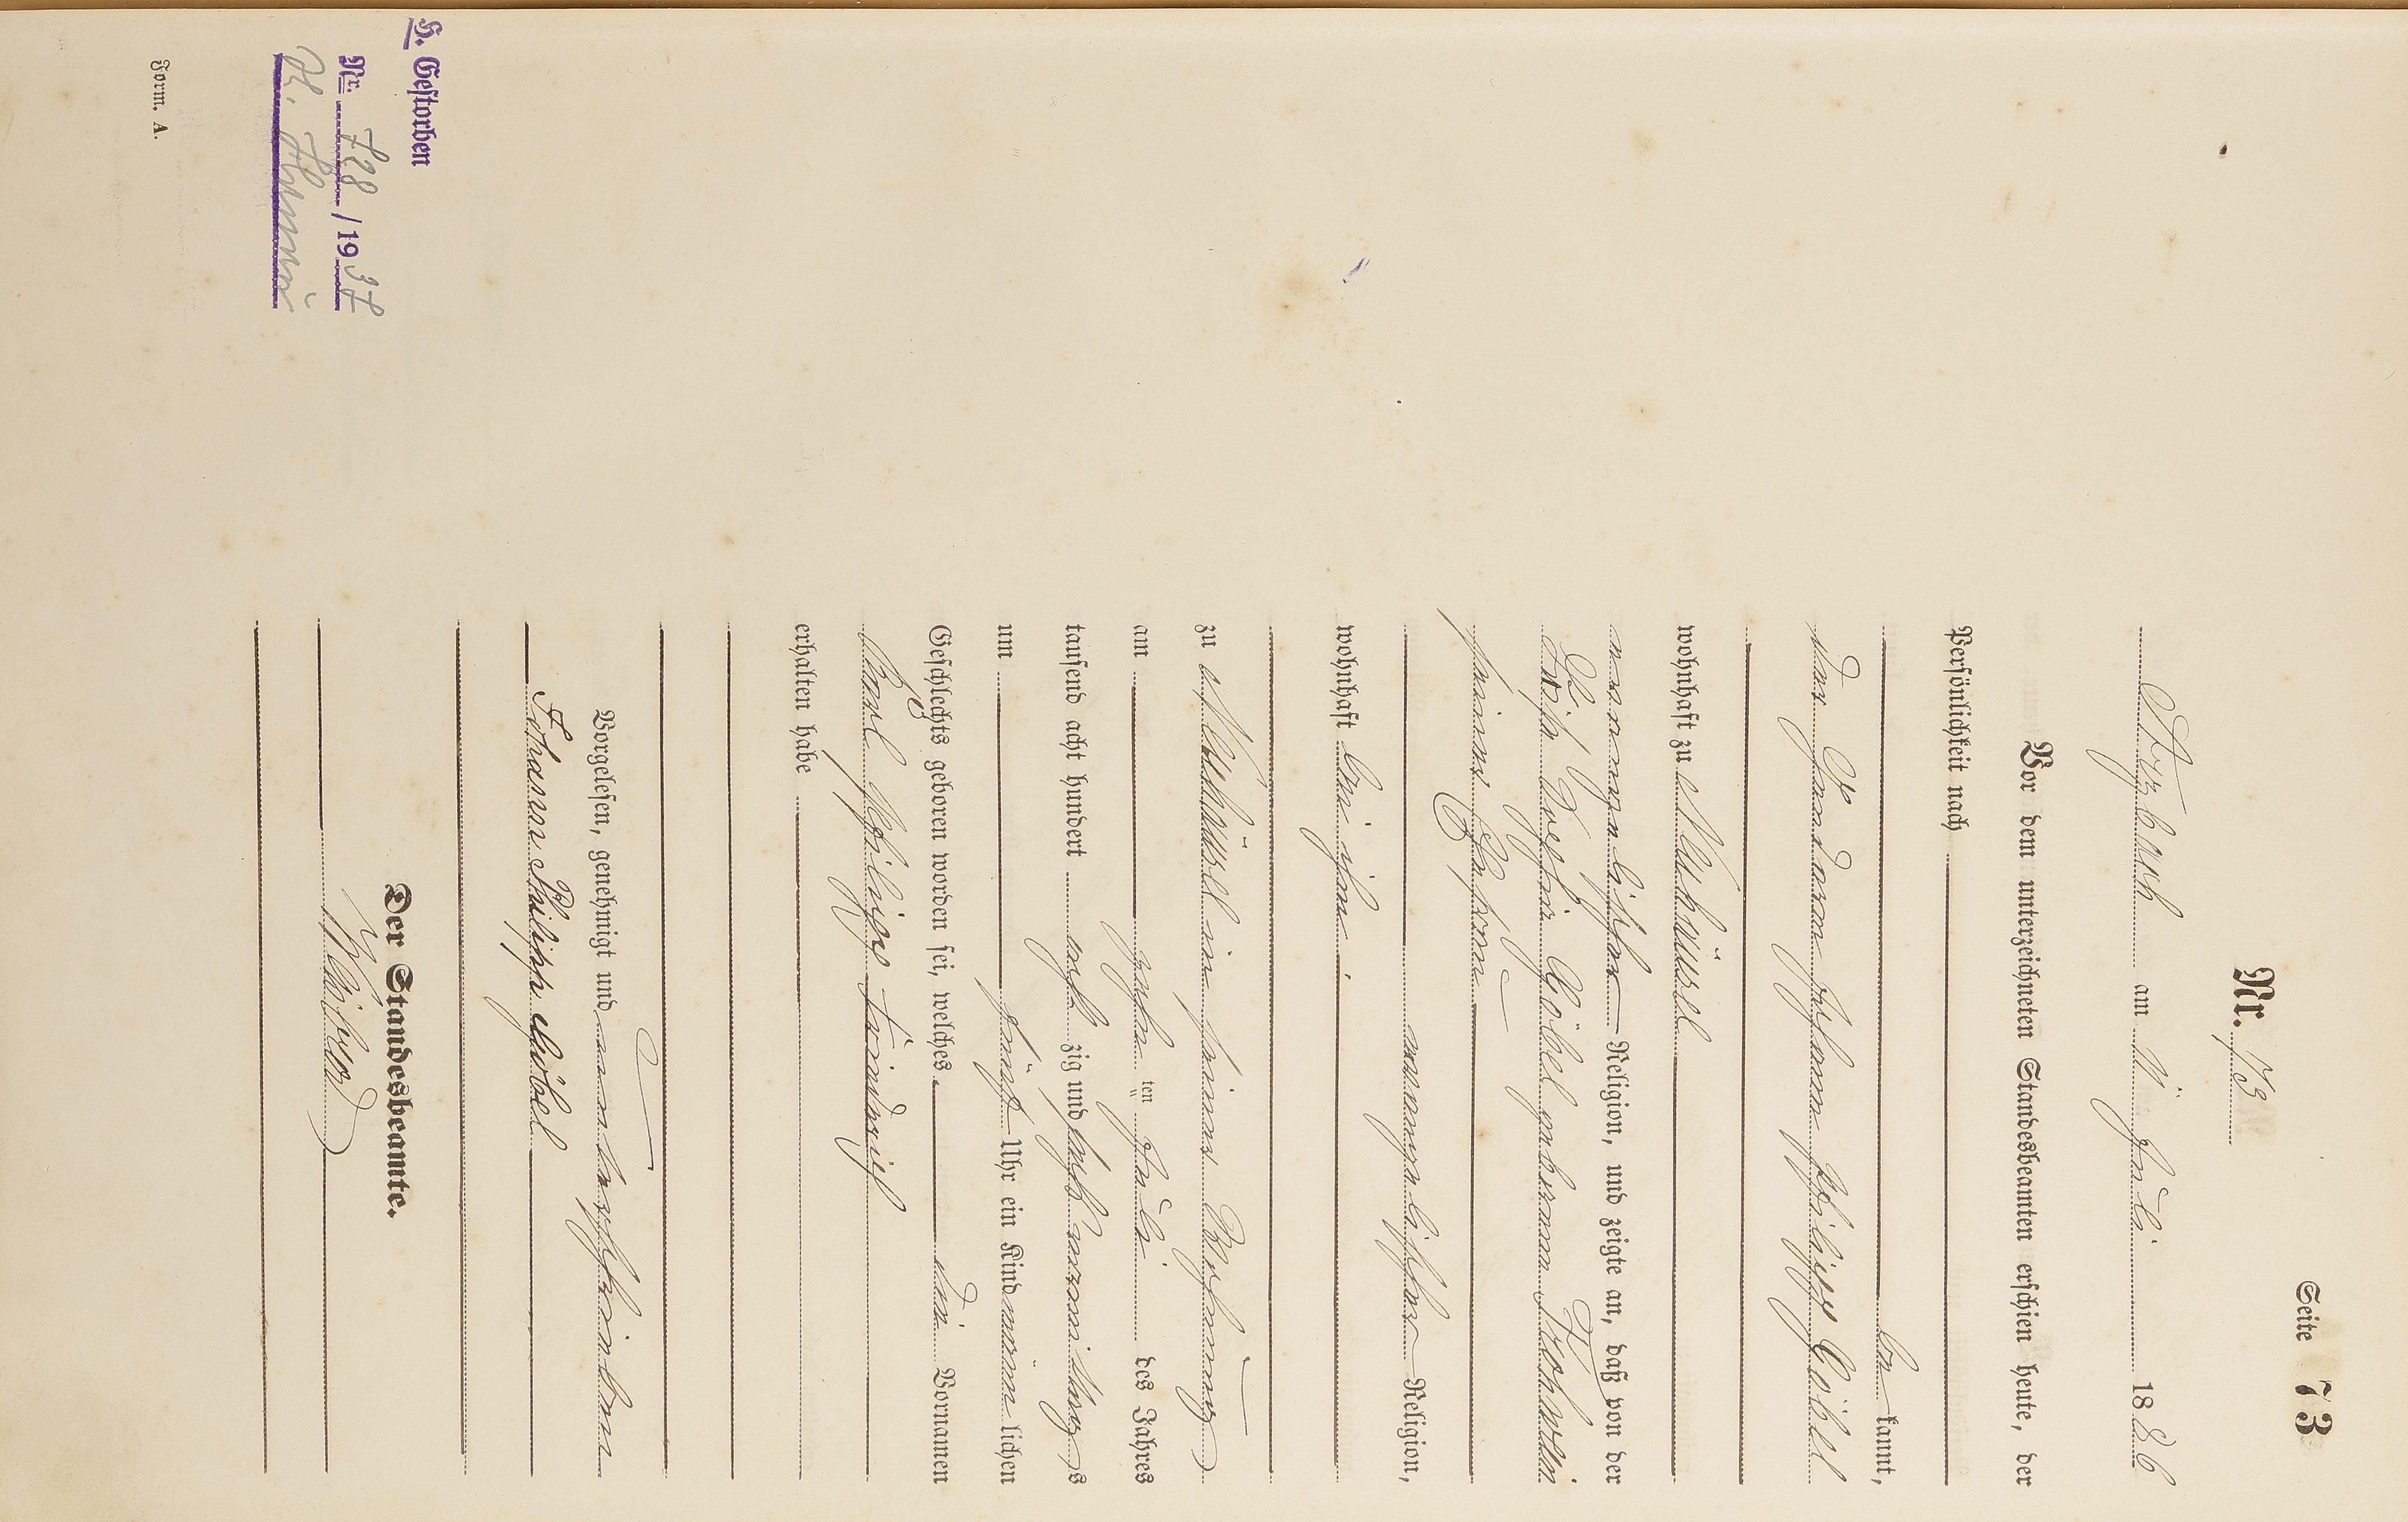 Seite 73
Nr. 73
Asbach am 11 Juli 1886
Vor dem unterzeichneten Standesbeamten erschien heute, der
Persönlichkeit nach
be kannt,
der Johann Philipp Göbel
wohnhaft zu
evangelischer Religion, und zeigte an, daß von der
Göbel geborenen
seiner Ehefrau
evangelischer Religion,
wohnhaft bei ihm
zu in seiner Wohnung
am zehn ten Juli des Jahres
tausend acht hundert acht zig und sechs Vormittags
um fünf Uhr ein Kind männ lichen
Geschlechts geboren worden sei, welches die Vornamen
Karl Philipp Friedrich
erhalten habe
Vorgelesen, genehmigt und unterschrieben
Johann Philipp Göbel
Der Standesbeamte.
H. Gestorben
Nr. 728 /1937
Form. A.